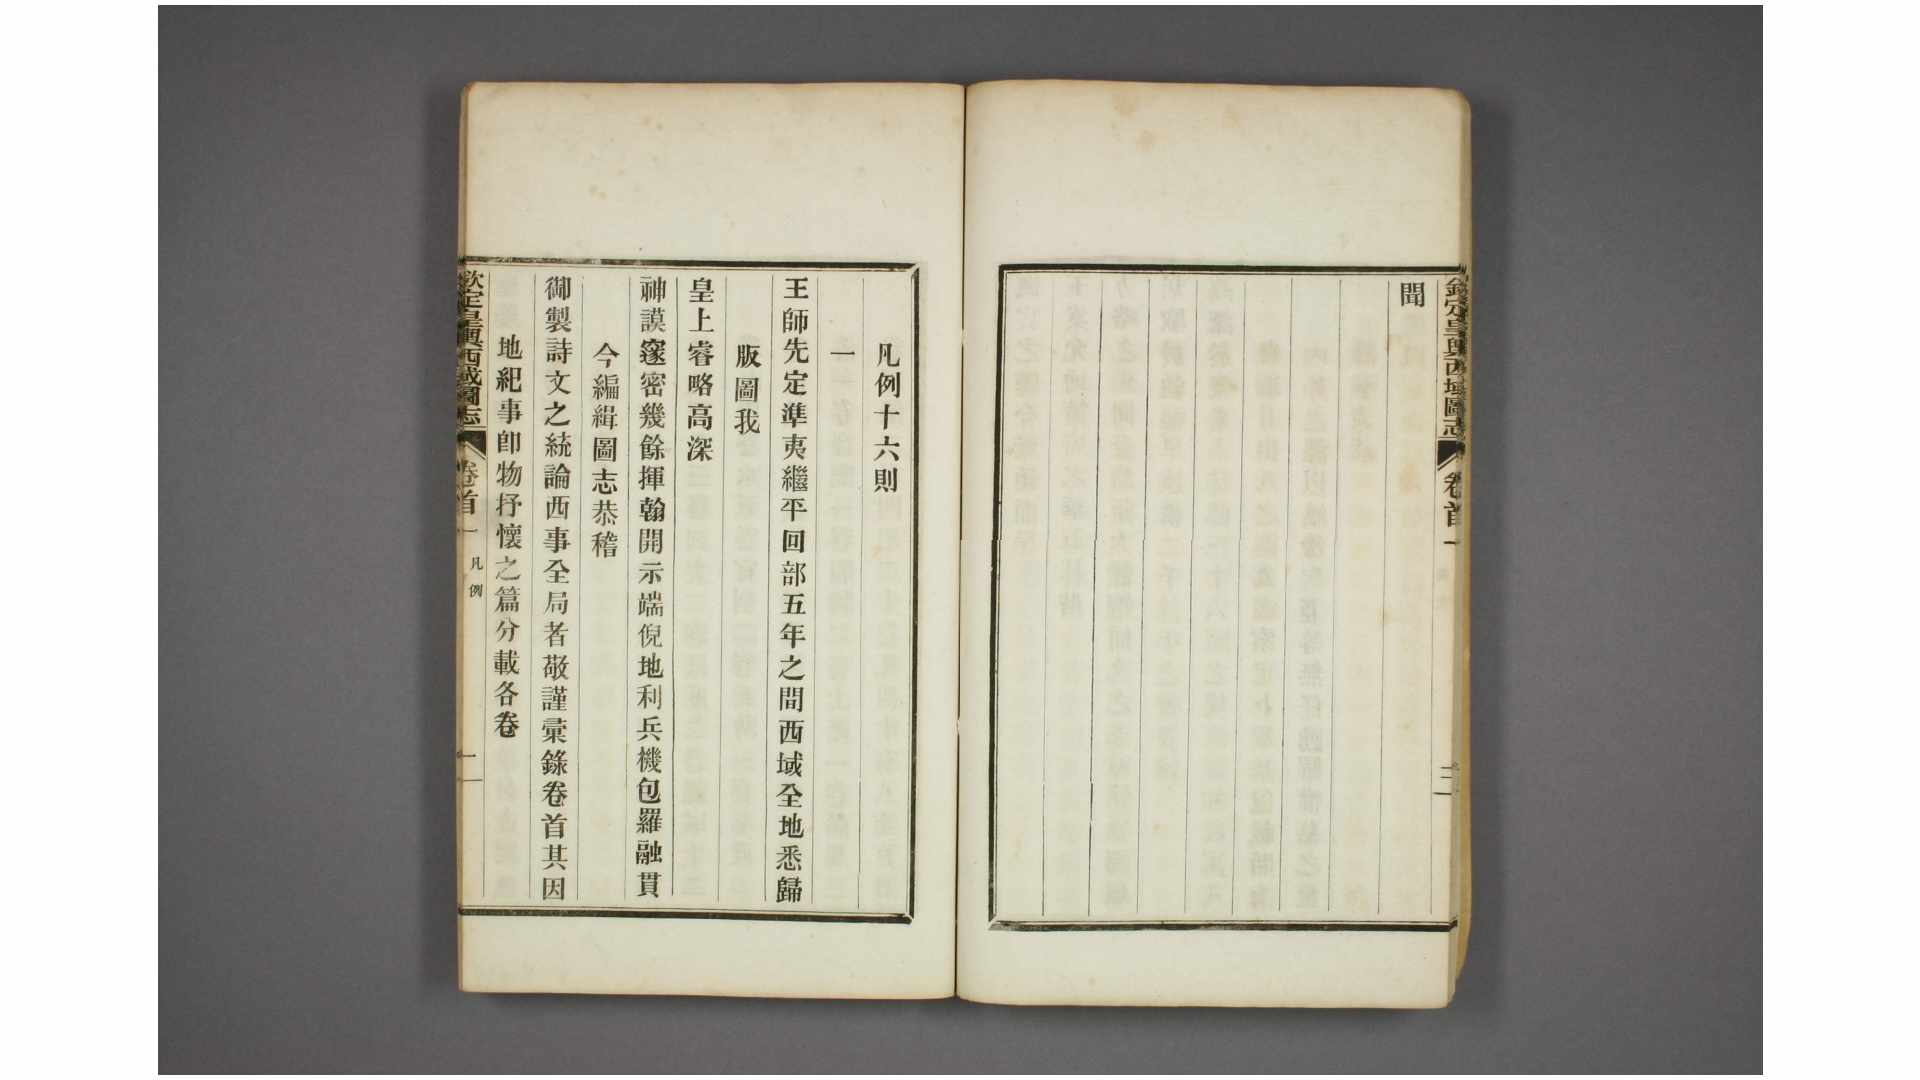 欽定皇輿西域圖志
卷首一
聞
凡例十六則
一
王師先定準夷繼平回部五年之間西域全地悉歸
版圖我
皇上睿略高深
神謨邃密幾餘揮翰開示端倪地利兵機包羅融貫
今編緝圖志恭稽
御製詩文之統論西事全局者敬謹彙錄卷首其因
地紀事卽物抒懷之篇分載各卷
欽定皇輿西域圖志
卷首一
凡例